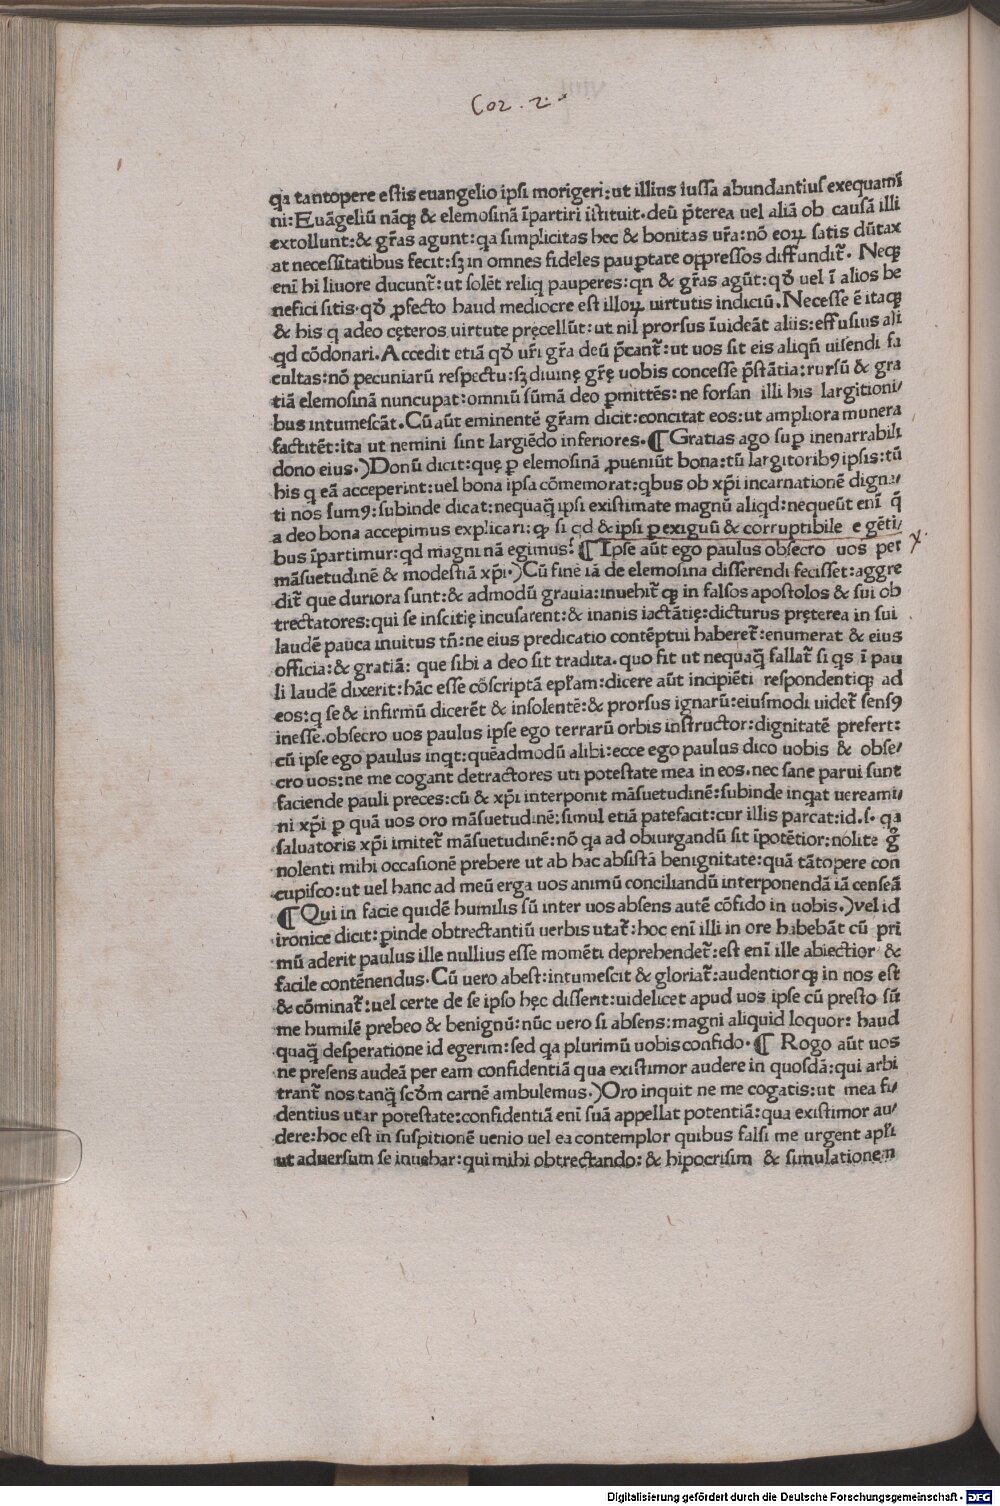 Cor. 2.
qa tantopere estis euangelio ipsi morigeri: ut illius iussa abundantius exequamī
ni: Euāgeliū nāq; & elemosinā īpartiri iſtituit. deū p̄terea uel aliā ob causā illi
extollunt: & gr̄as agunt: qa simplicitas hec & bonitas ur̄a: nō eoꝝ satis dūtax
at necessitatibus fecit: sꝫ in omnes fideles paup̄tate oppressos diffundit̄. Neq;
enī hi liuore ducunt̄: ut solēt reliq pauperes: qn & gr̄as agūt: qđ uel ī alios be
nefici sitis. qđ ꝓfecto haud mediocre est illoꝝ uirtutis indiciū. Necesse ē itaq;
& his q adeo cęteros uirtute pręcellūt: ut nil prorsus īuideāt aliis: effusius ali
qd cōdonari. Accedit etiā qđ ur̄i gr̄a deū p̄cant̄: ut uos sit eis aliqn̄ uisendi fa
cultas: nō pecuniarū respectu: sꝫ diuinę gr̄ę uobis concesse p̄stātia: rursū & gra
tiā elemosinā nuncupat: omniū sūmā deo ꝑmittēs: ne forsan illi his largitioni/
bus intumescāt. Cū aūt eminentē gr̄am dicit: concitat eos: ut ampliora munera
factitēt: ita ut nemini sint largiēdo inferiores. ¶ Gratias ago suꝑ inenarrabili
dono eius.) Donū dicit: quę ꝑ elemosinā ꝓueniūt bona: tū largitoribꝰ ipsis: tū
his q eā acceperint: uel bona ipsa cōmemorat: qbus ob xp̄i incarnationē digna/
ti nos sumꝰ: subinde dicat: nequaq̄ ipsi existimate magnū aliqd: nequeūt enī q̄
a deo bona accepimus explicari: ꝙ si qd & ipsi ꝑexiguū & corruptibile egēti/
bus īpartimur: qd magni nā egimus? ¶ Ipse aūt ego paulus obsecro uos per
X.
māsuetudinē & modestiā xp̄i.) Cū finē iā de elemosina disserendi fecisset: aggre
dit̄ que duriora sunt: & admodū grauia: inuehit̄ q; in falsos apostolos & sui ob
trectatores: qui se inscitię incusarent: & inanis iactātię: dicturus pręterea in sui
laudē pauca inuitus tn̄: ne eius predicatio contēptui haberet̄: enumerat & eius
officia: & gratiā: que sibi a deo sit tradita. quo fit ut nequaq̄ fallat̄ si qs ī pau
li laudē dixerit: hāc esse cōscriptā epl̄am: dicere aūt incipiēti respondentiq; ad
eos: q se & infirmū dicerēt & insolentē: & prorsus ignarū: eiusmodi uidet̄ sensꝰ
inesse. obsecro uos paulus ipse ego terrarū orbis instructor: dignitatē prefert:
cū ipse ego paulus inqt: quēadmodū alibi: ecce ego paulus dico uobis & obse/
cro uos: ne me cogant detractores uti potestate mea in eos. nec sane parui sunt
faciende pauli preces: cū & xp̄i interponit māsuetudinē: subinde inqat uereami/
ni xp̄i ꝑ quā uos oro māsuetudinē: simul etiā patefacit: cur illis parcat: id. s. qa
saluatoris xp̄i imitet̄ māsuetudinē: nō qa ad obiurgandū sit īpotētior: nolite g̊
nolenti mihi occasionē prebere ut ab hac absistā benignitate: quā tātopere con
cupisco: ut uel hanc ad meū erga uos animū conciliandū interponendā iā censeā
¶ Qui in facie quidē humilis sū inter uos absens autē cōfido in uobis.) vel id
ironice dicit: ꝑinde obtrectantiū uerbis utat̄: hoc enī illi in ore habebāt cū pri
mū aderit paulus ille nullius esse momēti deprehendet̄: est enī ille abiectior &
facile contēnendus. Cū uero abest: intumescit & gloriat̄: audentior q; in nos est
& cōminat̄: uel certe de se ipso hęc disserit: uidelicet apud uos ipse cū presto sū
me humilē prebeo & benignū: nūc uero si absens: magni aliquid loquor: haud
quaq̄ desperatione id egerim: sed qa plurimū uobis confido. ¶ Rogo aūt uos
ne presens audeā per eam confidentiā qua existimor audere in quosdā: qui arbi
trant̄ nos tanq̄ scđm carnē ambulemus.) Oro inquit ne me cogatis: ut mea fi/
dentius utar potestate: confidentiā enī suā appellat potentiā: qua existimor au/
dere: hoc est in suspitionē uenio uel ea contemplor quibus falsi me urgent apl̄i
ut aduersum se inuehar: qui mihi obtrectando: & hipocrisim & simulationem
Digitalisierung gefördert durch die Deutsche Forschungsgemeinschaft - DFG